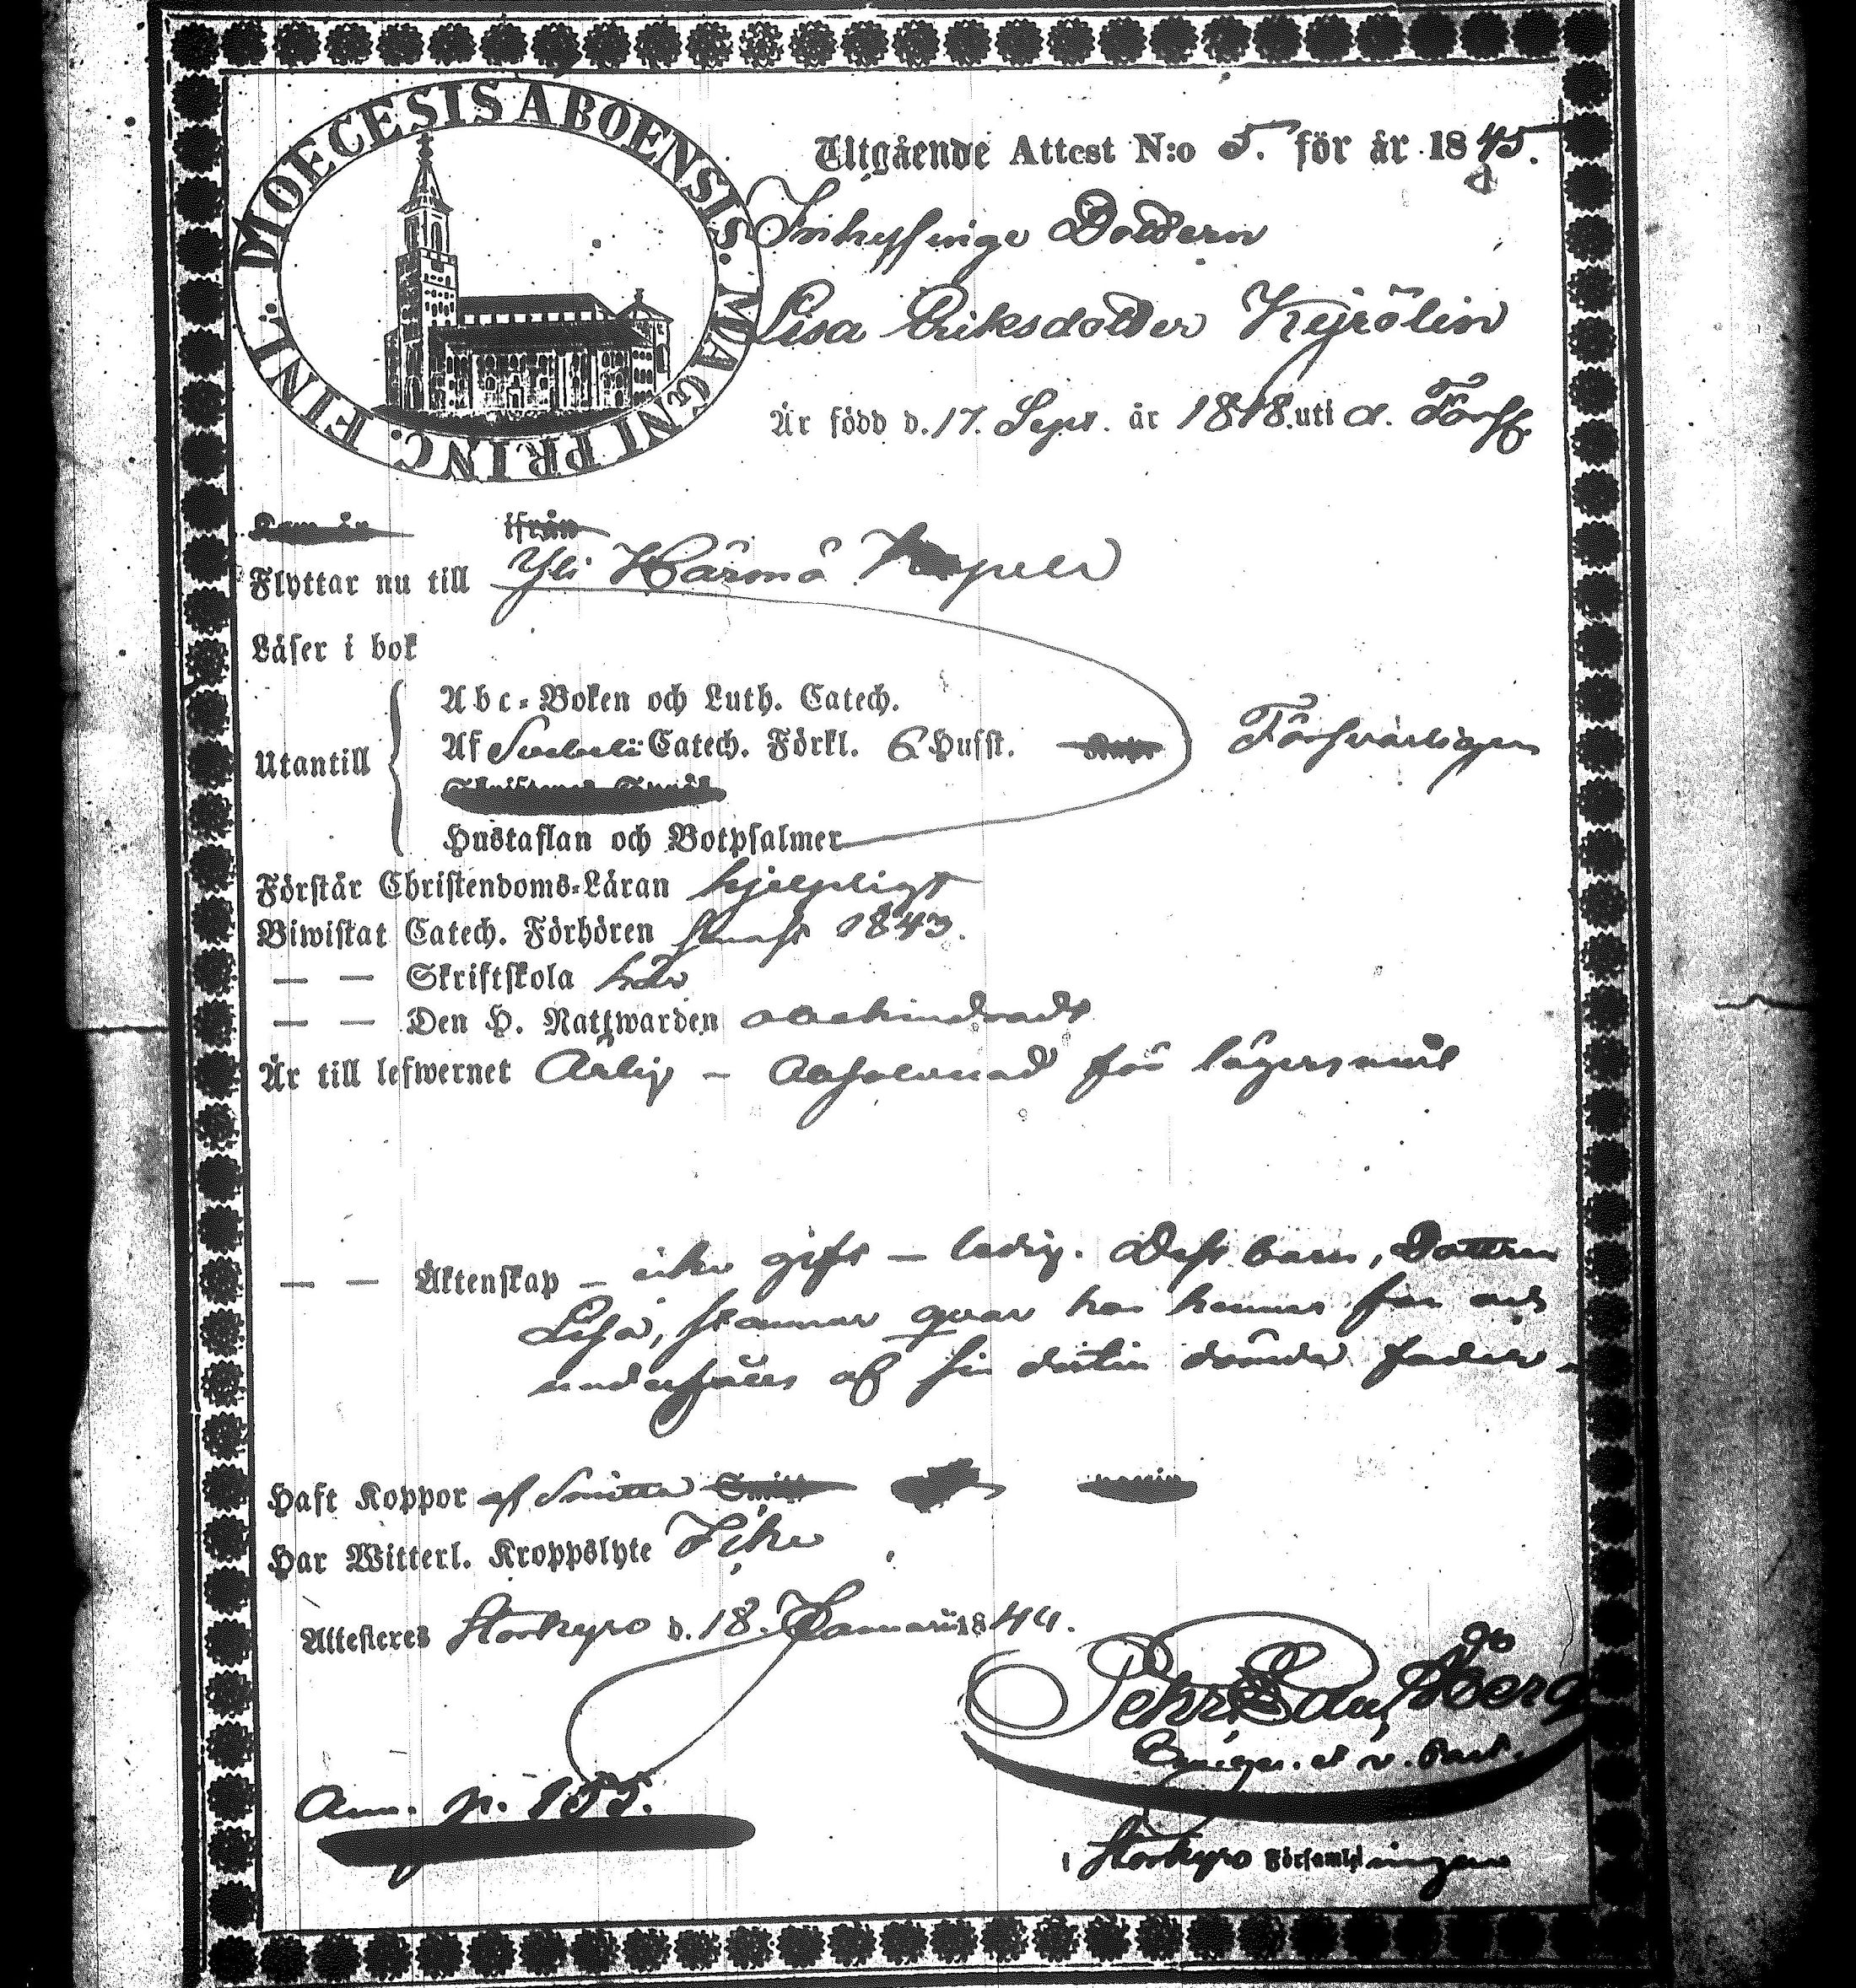 DIOECESIS ABOENSIS. MAGNI PRINC. FINL.
Utgående Attest N:o 5. för år 1845.
Inhysinge Dottern
Lisa Eriksdotter Kyrölin
Är född d. 17. Sept. år 1818. uti d. Förss.
Kom år ifrån
Flyttar nu till Yli Härmä Kapell
Läser i bok
Utantill
Abc-Boken och Luth. Catech.
Af Svebelii Catech. Förkl. 6 Hufst.
Skriftenes Språk
Hustaflan och Botpsalmer
Försvarligen
Förstår Christendoms-Läran hjelpligt
Biwistat Catech. Förhören senast 1843.
— — Skriftskola här
— — Den H. Nattwarden obehindradt
Är till lefwernet Ärlig – absolverad för lägersmål
— — Äktenskap – icke gift – ledig. Dess barn, Dottren
Lisa, stannar qvar hos hennes far och
underhålles af sin dertill dömde fader –
Haft Koppor af Smitta
Har Witterl. Kroppslyte Icke
Attesteres Storkyro d. 18. Januarii 1844.
Pehr Edu. Åberg
et v. Past.
Ann. p. 155.
i Storkyro Församlingen